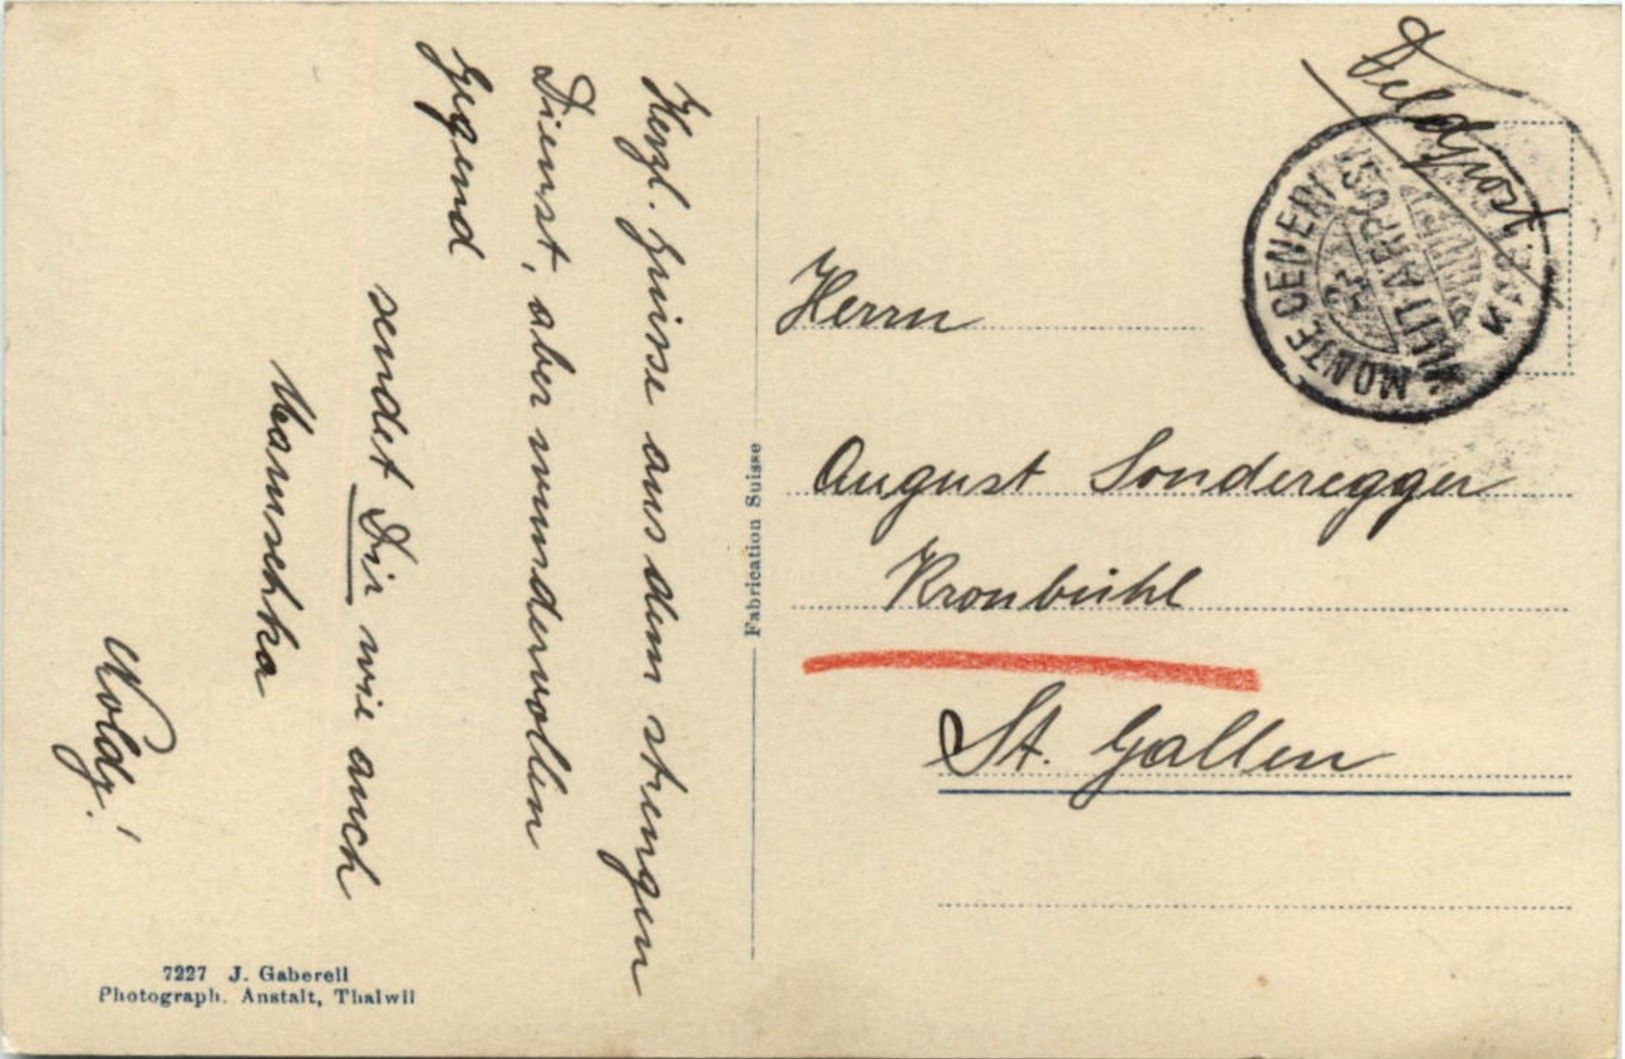 Herzl. Grüsse aus dem strengen
Dienst, aber wundervollen
Gegend
sendet Dir wie auch
Mamschka
Noldy!
7227 J. Gaberell
Photograph. Anstalt, Thalwil
Fabrication Suisse
Feldpost
MONTE CENERI
MILITÄRPOST
Herrn
August Sonderegger
Kronbühl
St. Gallen